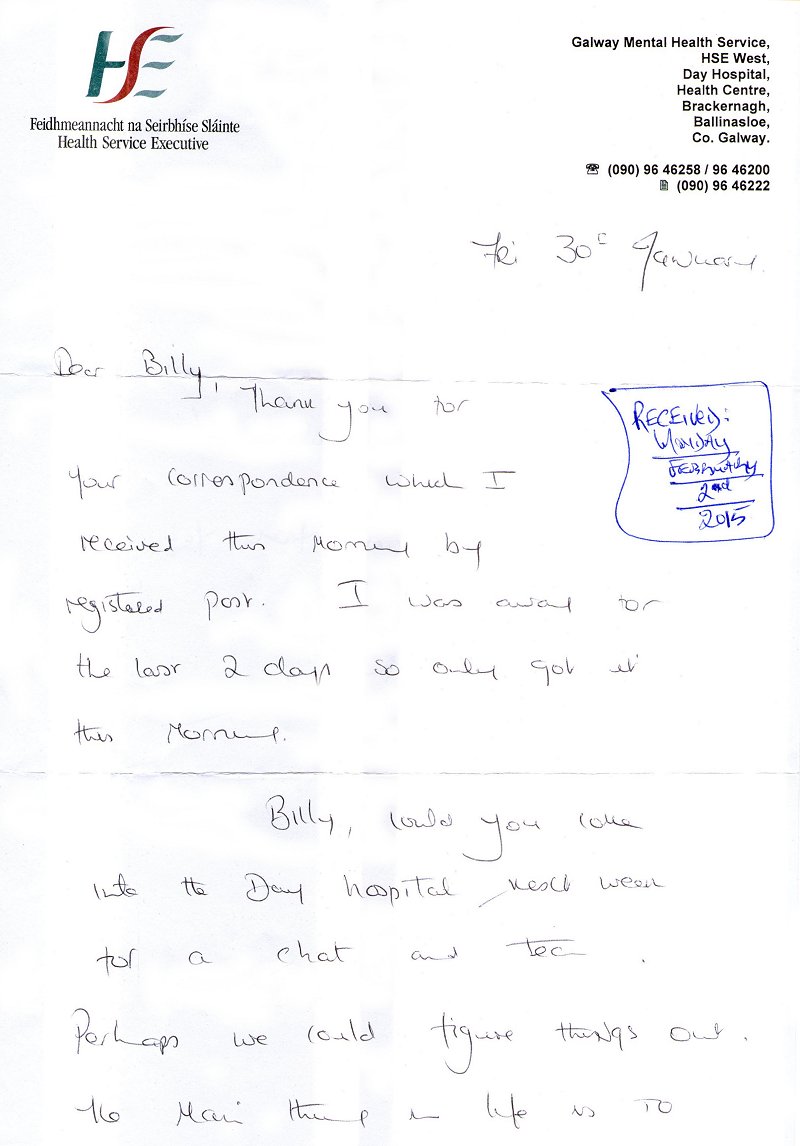 HSE
Feidhmeannacht na Seirbhíse Sláinte
Health Service Executive
Galway Mental Health Service,
HSE West,
Day Hospital,
Health Centre,
Brackernagh,
Ballinasloe,
Co. Galway.
☎ (090) 96 46258 / 96 46200
(090) 96 46222
Fri 30th January
Dear Billy,
Thank you for
your correspondence which I
received this morning by
registered post. I was away for
the last 2 days so only got it
this morning.
RECEIVED:
MONDAY
FEBRUARY
2nd
2015
Billy, could you come
into the Day hospital next week
for a chat and tea.
Perhaps we could figure things out.
The main thing in life is to